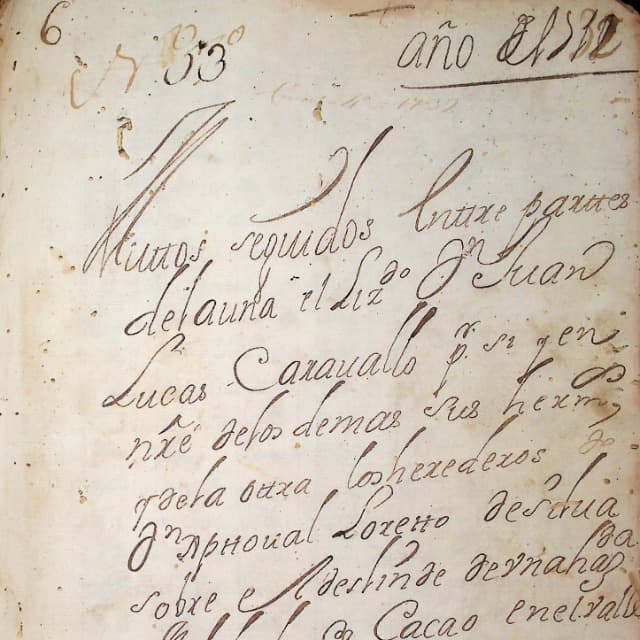 6
Nº 53
año
Auttos seguidos Enttre parttes
de la una el Lizdo Dn Juan
Lucas Carauallo pr si y en
nre delos demas sus hermos
y dela ottra los herederos de
Dn Xpttoual Loretto de Silua
sobre el deslinde de vna hazda
de Cacao en el valle